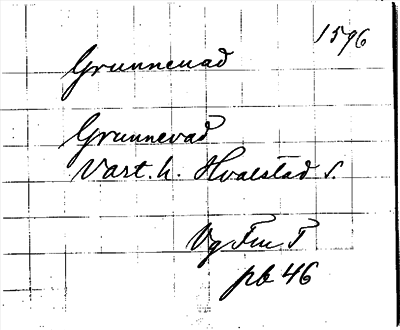 1596
Grunnevad
Grunnevad
Vart. h. Hvalstad s.
Vg Fm T
pb 46